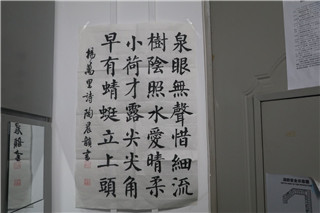 泉眼無聲惜細流
樹陰照水愛晴柔
小荷才露尖尖角
早有蜻蜓立上頭
楊萬里詩陶晨韻書